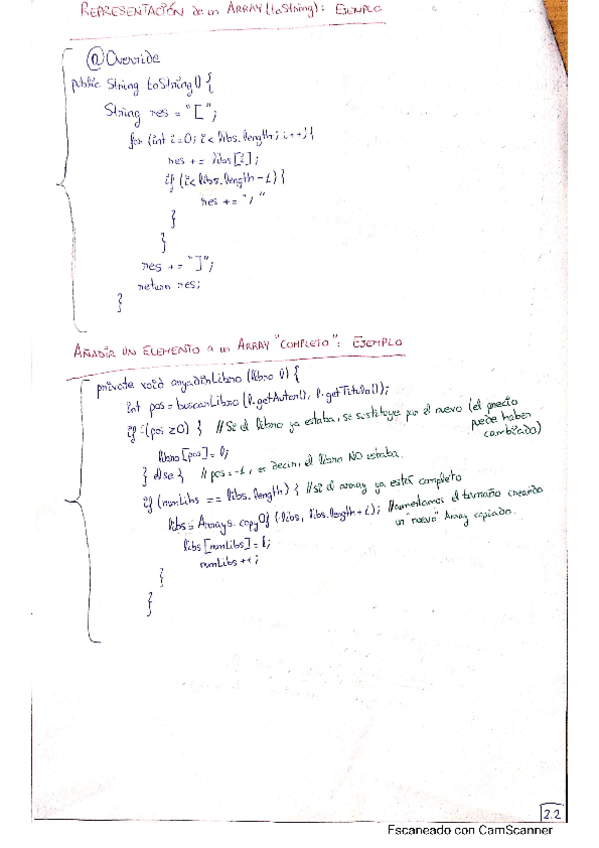 REPRESENTACIÓN de un ARRAY (toString): EJEMPLO
@Override
public String toString() {
String res = "[";
for (int i=0; i< libs.length; i++){
res += libs[i];
if (i< libs.length -1){
res += ", "
}
}
res += "]";
return res;
}
AÑADIR UN ELEMENTO a un ARRAY "COMPLETO": EJEMPLO
private void anyadirLibro (Libro l) {
int pos = buscarLibro (l.getAutor(), l.getTitulo());
if (pos ≥0) { // Si el libro ya estaba, se sustituye por el nuevo (el precio
puede haber
cambiado)
libro [pos] = l;
} else { // pos = -1, es decir, el libro NO estaba.
if (numLibs == libs.length) { // si el array ya está completo
libs = Arrays.copyOf (libs, libs.length + 1); // aumentamos el tamaño creando
un "nuevo" Array copiado.
libs [numLibs] = l;
numLibs ++;
}
}
2.2
Escaneado con CamScanner